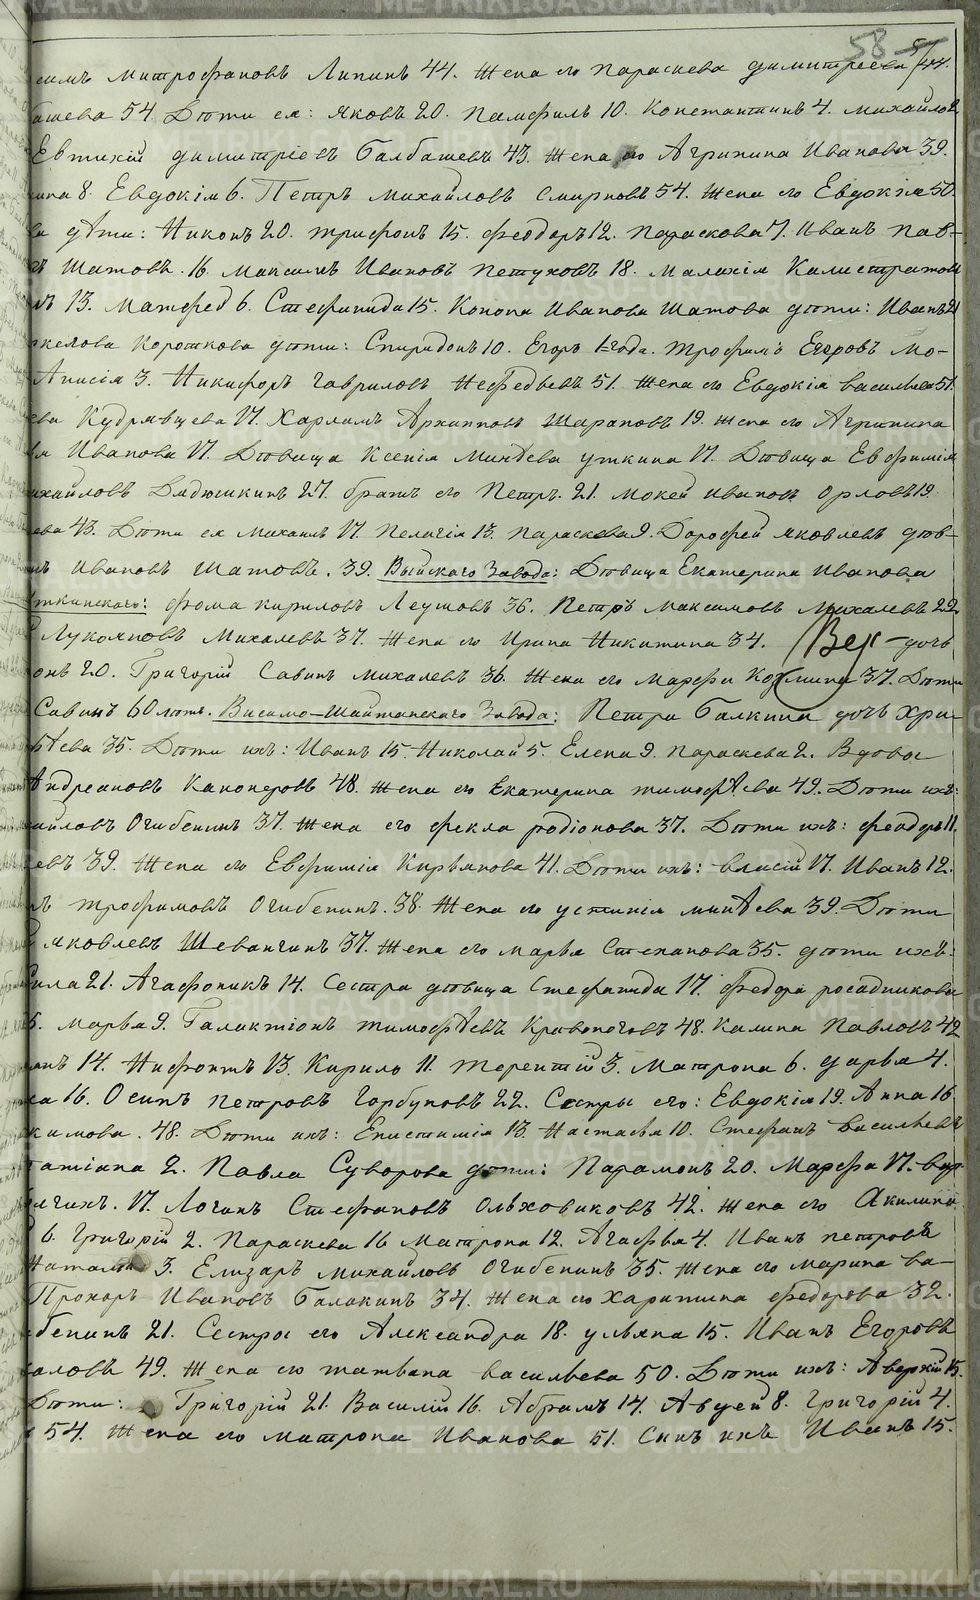 58 57
симъ Митрофановъ Липинъ 44. Жена его Параскева Димитреева 44.
башева 54. Дѣти ея: Яковъ 20. Памфилъ 10. Константинъ 4. Михайлов
Евтихій Димитріевъ Балбашевъ 43. Жена его Агрипина Иванова 39.
8. Евдокімъ 6. Петръ Михайловъ Смирновъ 54. Жена его Евдокія 50
дѣти: Никонъ 20. Трифонъ 15. Феодоръ 12. Параскова 7. Иванъ Пав-
Шатовъ. 16. Максимъ Ивановъ Петуховъ 18. Малахія Калистратов
13. Матфей 6. Стефанида 15. Конона Иванова Шатова дѣти: Иванъ 21
Короткова дѣти: Спиридонъ 10. Егоръ 1 года. Трофимъ Егоровъ Мо-
Анисія 3. Никифоръ Гавриловъ Нефедьевъ 51. Жена его Евдокія Васильева 51.
Кудрявцева 17. Харламъ Архиповъ Шараповъ 19. Жена его Агрипина
Иванова 17. Дѣвица Ксенія Минѣева Уткина 17. Дѣвица Евфимія
ихайловъ Дядюшкинъ 27. братъ его Петръ. 21. Мокей Ивановъ Орловъ 19.
ева 43. Дѣти ея Михаилъ 17. Пелагія 13. Параскева 9. Дорофей Яковлевъ дѣв-
Ивановъ Шатовъ. 39. Выйскаго Завода: Дѣвица Екатерина Иванова
Уткинскаго: Фома Кириловъ Леушовъ 36. Петръ Максимовъ Михалевъ 22.
Лукояновъ Михалевъ 37. Жена его Ирина Никитина 34. Вер - дочь
онъ 20. Григорій Савинъ Михалевъ 36. Жена его Марфа Козмина 37. Дѣти
Савинъ 60 лѣтъ. Висимо-Шайтанскаго Завода: Петра Балкина дочь Хри-
ѣева 35. Дѣти ихъ: Иванъ 15. Николай 5. Елена 9. Параскева 2. Вдова
Андреяновъ Канонеровъ 48. Жена его Екатерина Тимофѣева 49. Дѣти ихъ:
айловъ Огибенинъ 37. Жена его Фекла Родіонова 37. Дѣти ихъ: Феодоръ 11.
евъ 39. Жена его Евфимія Кирьянова 41. Дѣти ихъ: Власій 17. Иванъ 12.
Трофимовъ Огибенинъ. 38. Жена его Устинія Минѣева 39. Дѣти
Яковлевъ Шевангинъ 37. Жена его Марья Степанова 35. дѣти ихъ:
ила 21. Агафоникъ 14. Сестра дѣвица Стефанида 17. Федора Росадникова
5. Марья 9. Галактіонъ Тимофѣевъ Кривоноговъ 48. Калина Павловъ 42
14. Нифонтъ 13. Кирило 11. Терентій 3. Матрона 6. Дарья 4.
16. Осипъ Петровъ Горбуновъ 22. Сестры его: Евдокія 19. Анна 16.
кимова. 48. Дѣти ихъ: Епистимія 13. Настасья 10. Стефанъ Васильевъ
Татіана 2. Павла Суворова дѣти: Парамонъ 20. Марфа 17. Вар-
17. Логинъ Стефановъ Ольховиковъ 42. Жена его Акилина
6. Григорій 2. Параскева 16. Матрона 12. Агафья 4. Иванъ Петровъ
Наталія 3. Елизаръ Михайловъ Огибенинъ 35. Жена его Марина Ва-
Прохоръ Ивановъ Балакинъ 34. Жена его Харитина Федорова 32.
бенинъ 21. Сестры его Александра 18. Ульяна 15. Иванъ Егоровъ
аловъ 49. Жена его Татьяна Васильева 50. Дѣти ихъ: Аверкій 15.
Дѣти: Григорій 21. Василій 16. Абрамъ 14. Авдей 8. Григорій 4.
54. Жена его Матрона Иванова 51. Сынъ ихъ Иванъ 15.
METRIKI.GASO-URAL.RU